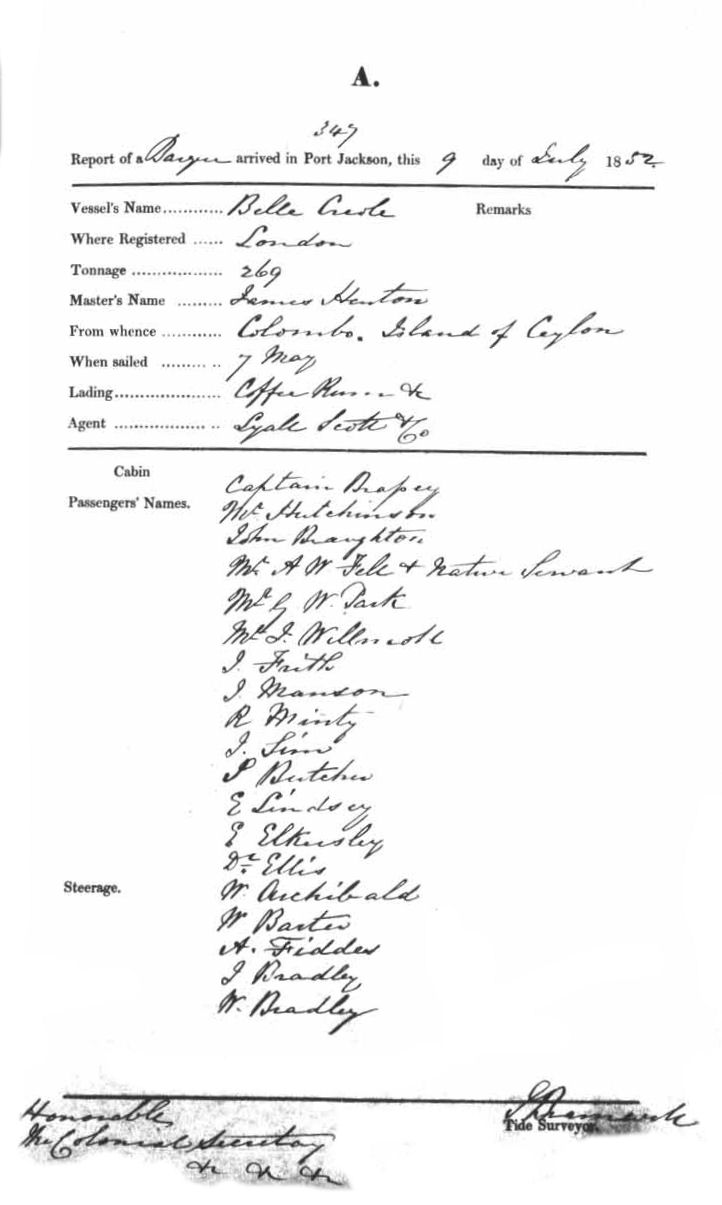 A.
347
Report of a Barque arrived in Port Jackson, this 9 day of July 1852.
Vessel's Name............ Belle Creole Remarks
Where Registered ...... London
Tonnage .................. 269
Master's Name ......... James Henton
From whence ............ Colombo. Island of Ceylon
When sailed ......... .. 7 May
Lading..................... Coffee Rum &c
Agent .................. .. Lyall Scott & Co
Cabin
Passengers' Names. Captain
Mr. Hutchinson
John Braughton
Mr. A W Fell & Native Servant
Mr G W. Park
Mr J. Willmott
J. Frith
J. Manson
R Minty
J. Sim
S Butcher
E Lindsey
E Elkersley
Dr. Ellis
Steerage. W. Archibald
W Barter
A. Fiddes
J Bradley
W. Bradley
Honorable
The Colonial Secretary
&c &c &c
Tide Surveyor.